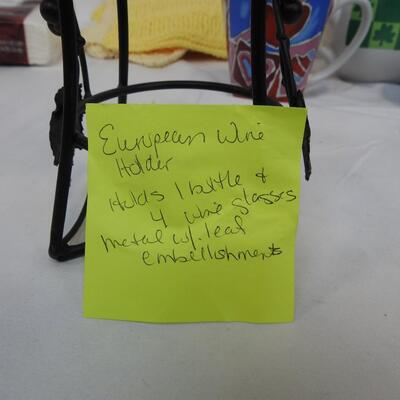 European Wine
Holder
Holds 1 bottle &
4 wine glasses
metal w/ leaf
embellishments